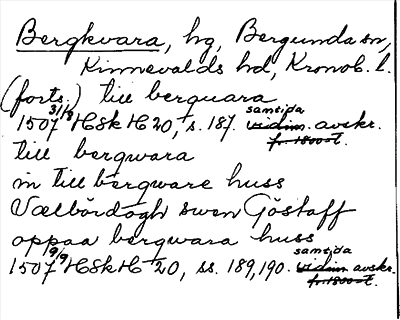 Bergkvara, hg, Bergunda sn,
Kinnevalds hd, Kronob. l.
(forts.) till berquara
1507 31/3 HSk H 20, s. 187. samtida vidim. avskr. fr. 1800-t.
till bergwara
in till bergware huss
Vælbördogh swen Göstaff
oppaa bergwara huss
1507 9/9 HSk H 20, ss. 189, 190. samtida vidim avskr. fr. 1800-t.